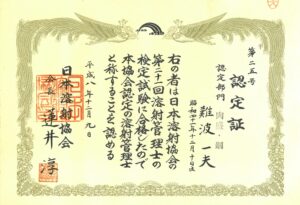 第二五号
認定証
認定部門 肉盛・鋼
難波一夫
昭和四十二年十二月十日生
右の者は日本溶射協会の
第二十二回溶射管理士の
検定試験に合格したので
本協会認定の溶射管理士
と称することを認める
平成八年十二月九日
日本溶射協会
会長 蓮井淳